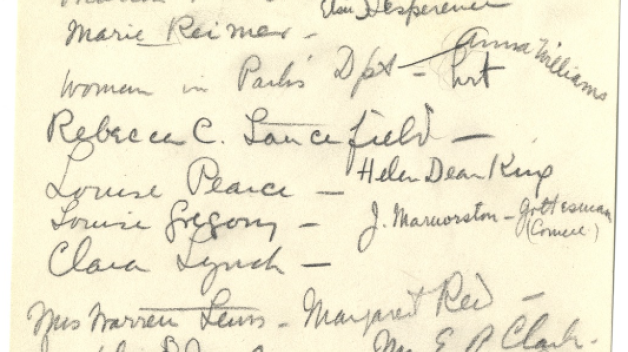 Marie Reimer -
Woman in Park's Dpt - Anna Williams
Rebecca C. Lancefield -
Louise Pearce - Helen Dean King
Louise Gregory - J. Marmorston - Gottesman
(Cornell)
Clara Lynch -
Mrs Warren Lewis - Margaret Reed -
Clark -